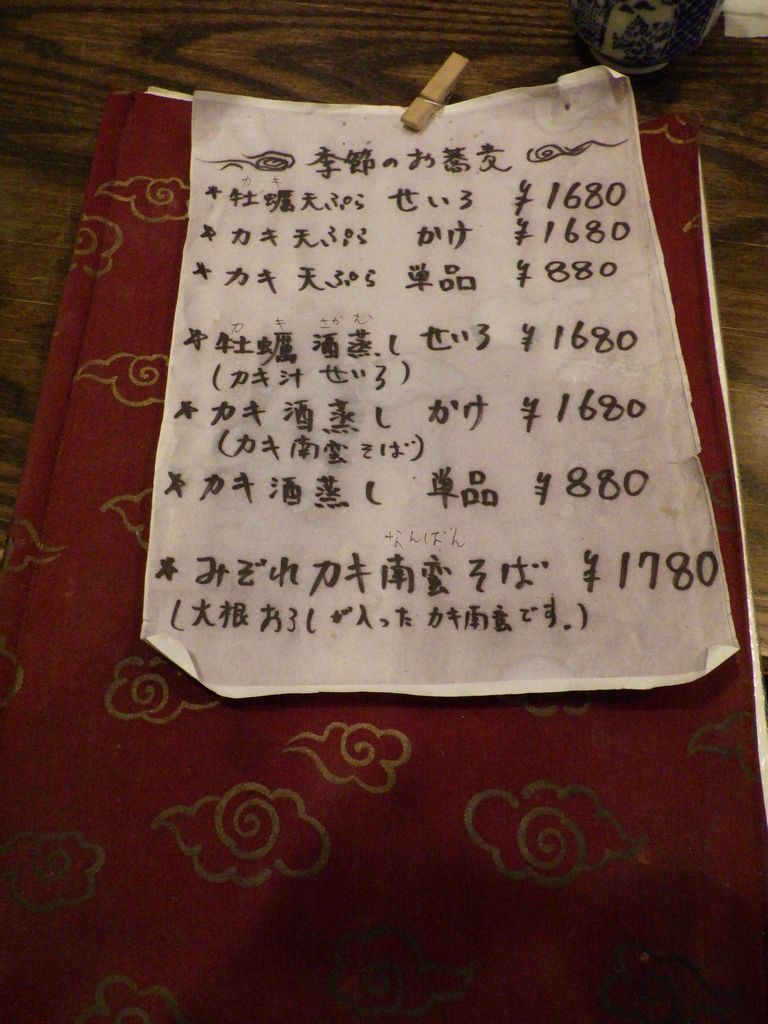 季節のお蕎麦
カキ
*牡蠣天ぷら せいろ ¥1680
*カキ天ぷら かけ ¥1680
*カキ天ぷら 単品 ¥880
カキ さかむ
*牡蠣酒蒸し せいろ ¥1680
(カキ汁せいろ)
*カキ酒蒸し かけ ¥1680
(カキ南蛮そば)
*カキ酒蒸し 単品 ¥880
なんばん
*みぞれカキ南蛮そば ¥1780
(大根おろしが入ったカキ南蛮です。)